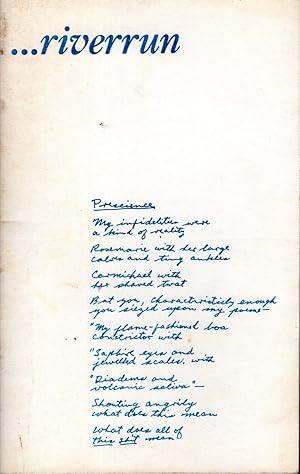 ...riverrun
Prescience
My infidelities were
a kind of reality
Rosemarie with her large
calves and tiny ankles
Carmichael with
her shaved twat
But you, characteristicly enough
you siezed upon my poems—
"My flame-fashioned boa
constrictor with
"Saphire eyes and
jewelled scales, with
"Diadems and
volcanic saliva"—
Shouting angrily
what does this mean
What does all of
this shit mean